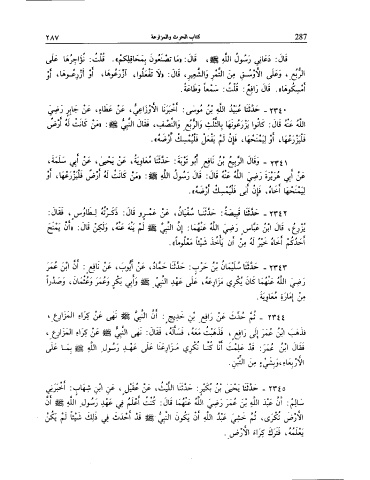 287 كتاب الحرث والمزارعة ٢٨٧
قَالَ: دَعَانِي رَسُولُ اللَّهِ ﷺ، قَالَ: «مَا تَصْنَعُونَ بِمَحَاقِلِكُمْ». قُلْتُ: نُؤَاجِرُهَا عَلَى
الرُّبُعِ، وَعَلَى الْأَوْسُقِ مِنَ التَّمْرِ وَالشَّعِيرِ، قَالَ: «لَا تَفْعَلُوا، ازْرَعُوهَا، أَوْ أَزْرِعُوهَا، أَوْ
أَمْسِكُوهَا». قَالَ رَافِعٌ: قُلْتُ: سَمْعاً وَطَاعَةً.
٢٣٤٠ - حَدَّثَنَا عُبَيْدُ اللَّهِ بْنُ مُوسَى: أَخْبَرَنَا الْأَوْزَاعِيُّ، عَنْ عَطَاءٍ، عَنْ جَابِرٍ رَضِيَ
اللَّهُ عَنْهُ قَالَ: كَانُوا يَزْرَعُونَهَا بِالثُّلُثِ وَالرُّبُعِ وَالنِّصْفِ، فَقَالَ النَّبِيُّ ﷺ: «مَنْ كَانَتْ لَهُ أَرْضٌ
فَلْيَزْرَعْهَا، أَوْ لِيَمْنَحْهَا، فَإِنْ لَمْ يَفْعَلْ فَلْيُمْسِكْ أَرْضَهُ».
٢٣٤١ - وَقَالَ الرَّبِيعُ بْنُ نَافِعٍ أَبُو تَوْبَةَ: حَدَّثَنَا مُعَاوِيَةُ، عَنْ يَحْيَى، عَنْ أَبِي سَلَمَةَ،
عَنْ أَبِي هُرَيْرَةَ رَضِيَ اللَّهُ عَنْهُ قَالَ: قَالَ رَسُولُ اللَّهِ ﷺ: «مَنْ كَانَتْ لَهُ أَرْضٌ فَلْيَزْرَعْهَا، أَوْ
لِيَمْنَحْهَا أَخَاهُ، فَإِنْ أَبَى فَلْيُمْسِكْ أَرْضَهُ».
٢٣٤٢ - حَدَّثَنَا قَبِيصَةُ: حَدَّثَنَا سُفْيَانُ، عَنْ عَمْرٍو قَالَ: ذَكَرْتُهُ لِطَاوُسٍ، فَقَالَ:
يُزْرِعُ، قَالَ ابْنُ عَبَّاسٍ رَضِيَ اللَّهُ عَنْهُمَا: إِنَّ النَّبِيَّ ﷺ لَمْ يَنْهَ عَنْهُ، وَلَكِنْ قَالَ: «أَنْ يَمْنَحَ
أَحَدُكُمْ أَخَاهُ خَيْرٌ لَهُ مِنْ أَنْ يَأْخُذَ شَيْئاً مَعْلُوماً».
٢٣٤٣ - حَدَّثَنَا سُلَيْمَانُ بْنُ حَرْبٍ: حَدَّثَنَا حَمَّادٌ، عَنْ أَيُّوبَ، عَنْ نَافِعٍ: أَنَّ ابْنَ عُمَرَ
رَضِيَ اللَّهُ عَنْهُمَا كَانَ يُكْرِي مَزَارِعَهُ، عَلَى عَهْدِ النَّبِيِّ ﷺ وَأَبِي بَكْرٍ وَعُمَرَ وَعُثْمَانَ، وَصَدْراً
مِنْ إِمَارَةِ مُعَاوِيَةَ.
٢٣٤٤ - ثُمَّ حُدِّثَ عَنْ رَافِعِ بْنِ خَدِيجٍ: أَنَّ النَّبِيَّ ﷺ نَهَى عَنْ كِرَاءِ الْمَزَارِعِ،
فَذَهَبَ ابْنُ عُمَرَ إِلَى رَافِعٍ، فَذَهَبْتُ مَعَهُ، فَسَأَلَهُ، فَقَالَ: نَهَى النَّبِيُّ ﷺ عَنْ كِرَاءِ الْمَزَارِعِ،
فَقَالَ ابْنُ عُمَرَ: قَدْ عَلِمْتَ أَنَّا كُنَّا نُكْرِي مَزَارِعَنَا عَلَى عَهْدِ رَسُولِ اللَّهِ ﷺ بِمَا عَلَى
الْأَرْبِعَاءِ، وَبِشَيْءٍ مِنَ التِّبْنِ.
٢٣٤٥ - حَدَّثَنَا يَحْيَى بْنُ بُكَيْرٍ: حَدَّثَنَا اللَّيْثُ، عَنْ عُقَيْلٍ، عَنِ ابْنِ شِهَابٍ: أَخْبَرَنِي
سَالِمٌ: أَنَّ عَبْدَ اللَّهِ بْنَ عُمَرَ رَضِيَ اللَّهُ عَنْهُمَا قَالَ: كُنْتُ أَعْلَمُ فِي عَهْدِ رَسُولِ اللَّهِ ﷺ أَنَّ
الْأَرْضَ تُكْرَى، ثُمَّ خَشِيَ عَبْدُ اللَّهِ أَنْ يَكُونَ النَّبِيُّ ﷺ قَدْ أَحْدَثَ فِي ذَلِكَ شَيْئاً لَمْ يَكُنْ
يَعْلَمُهُ، فَتَرَكَ كِرَاءَ الْأَرْضِ.